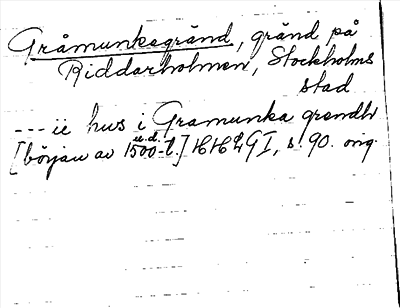 Gråmunkegränd, gränd på
Riddarholmen, Stockholms
stad
--- ii hus i Gramunka grendh
u.d.
[början av 1500-t.] HHLGI, s. 90. orig.